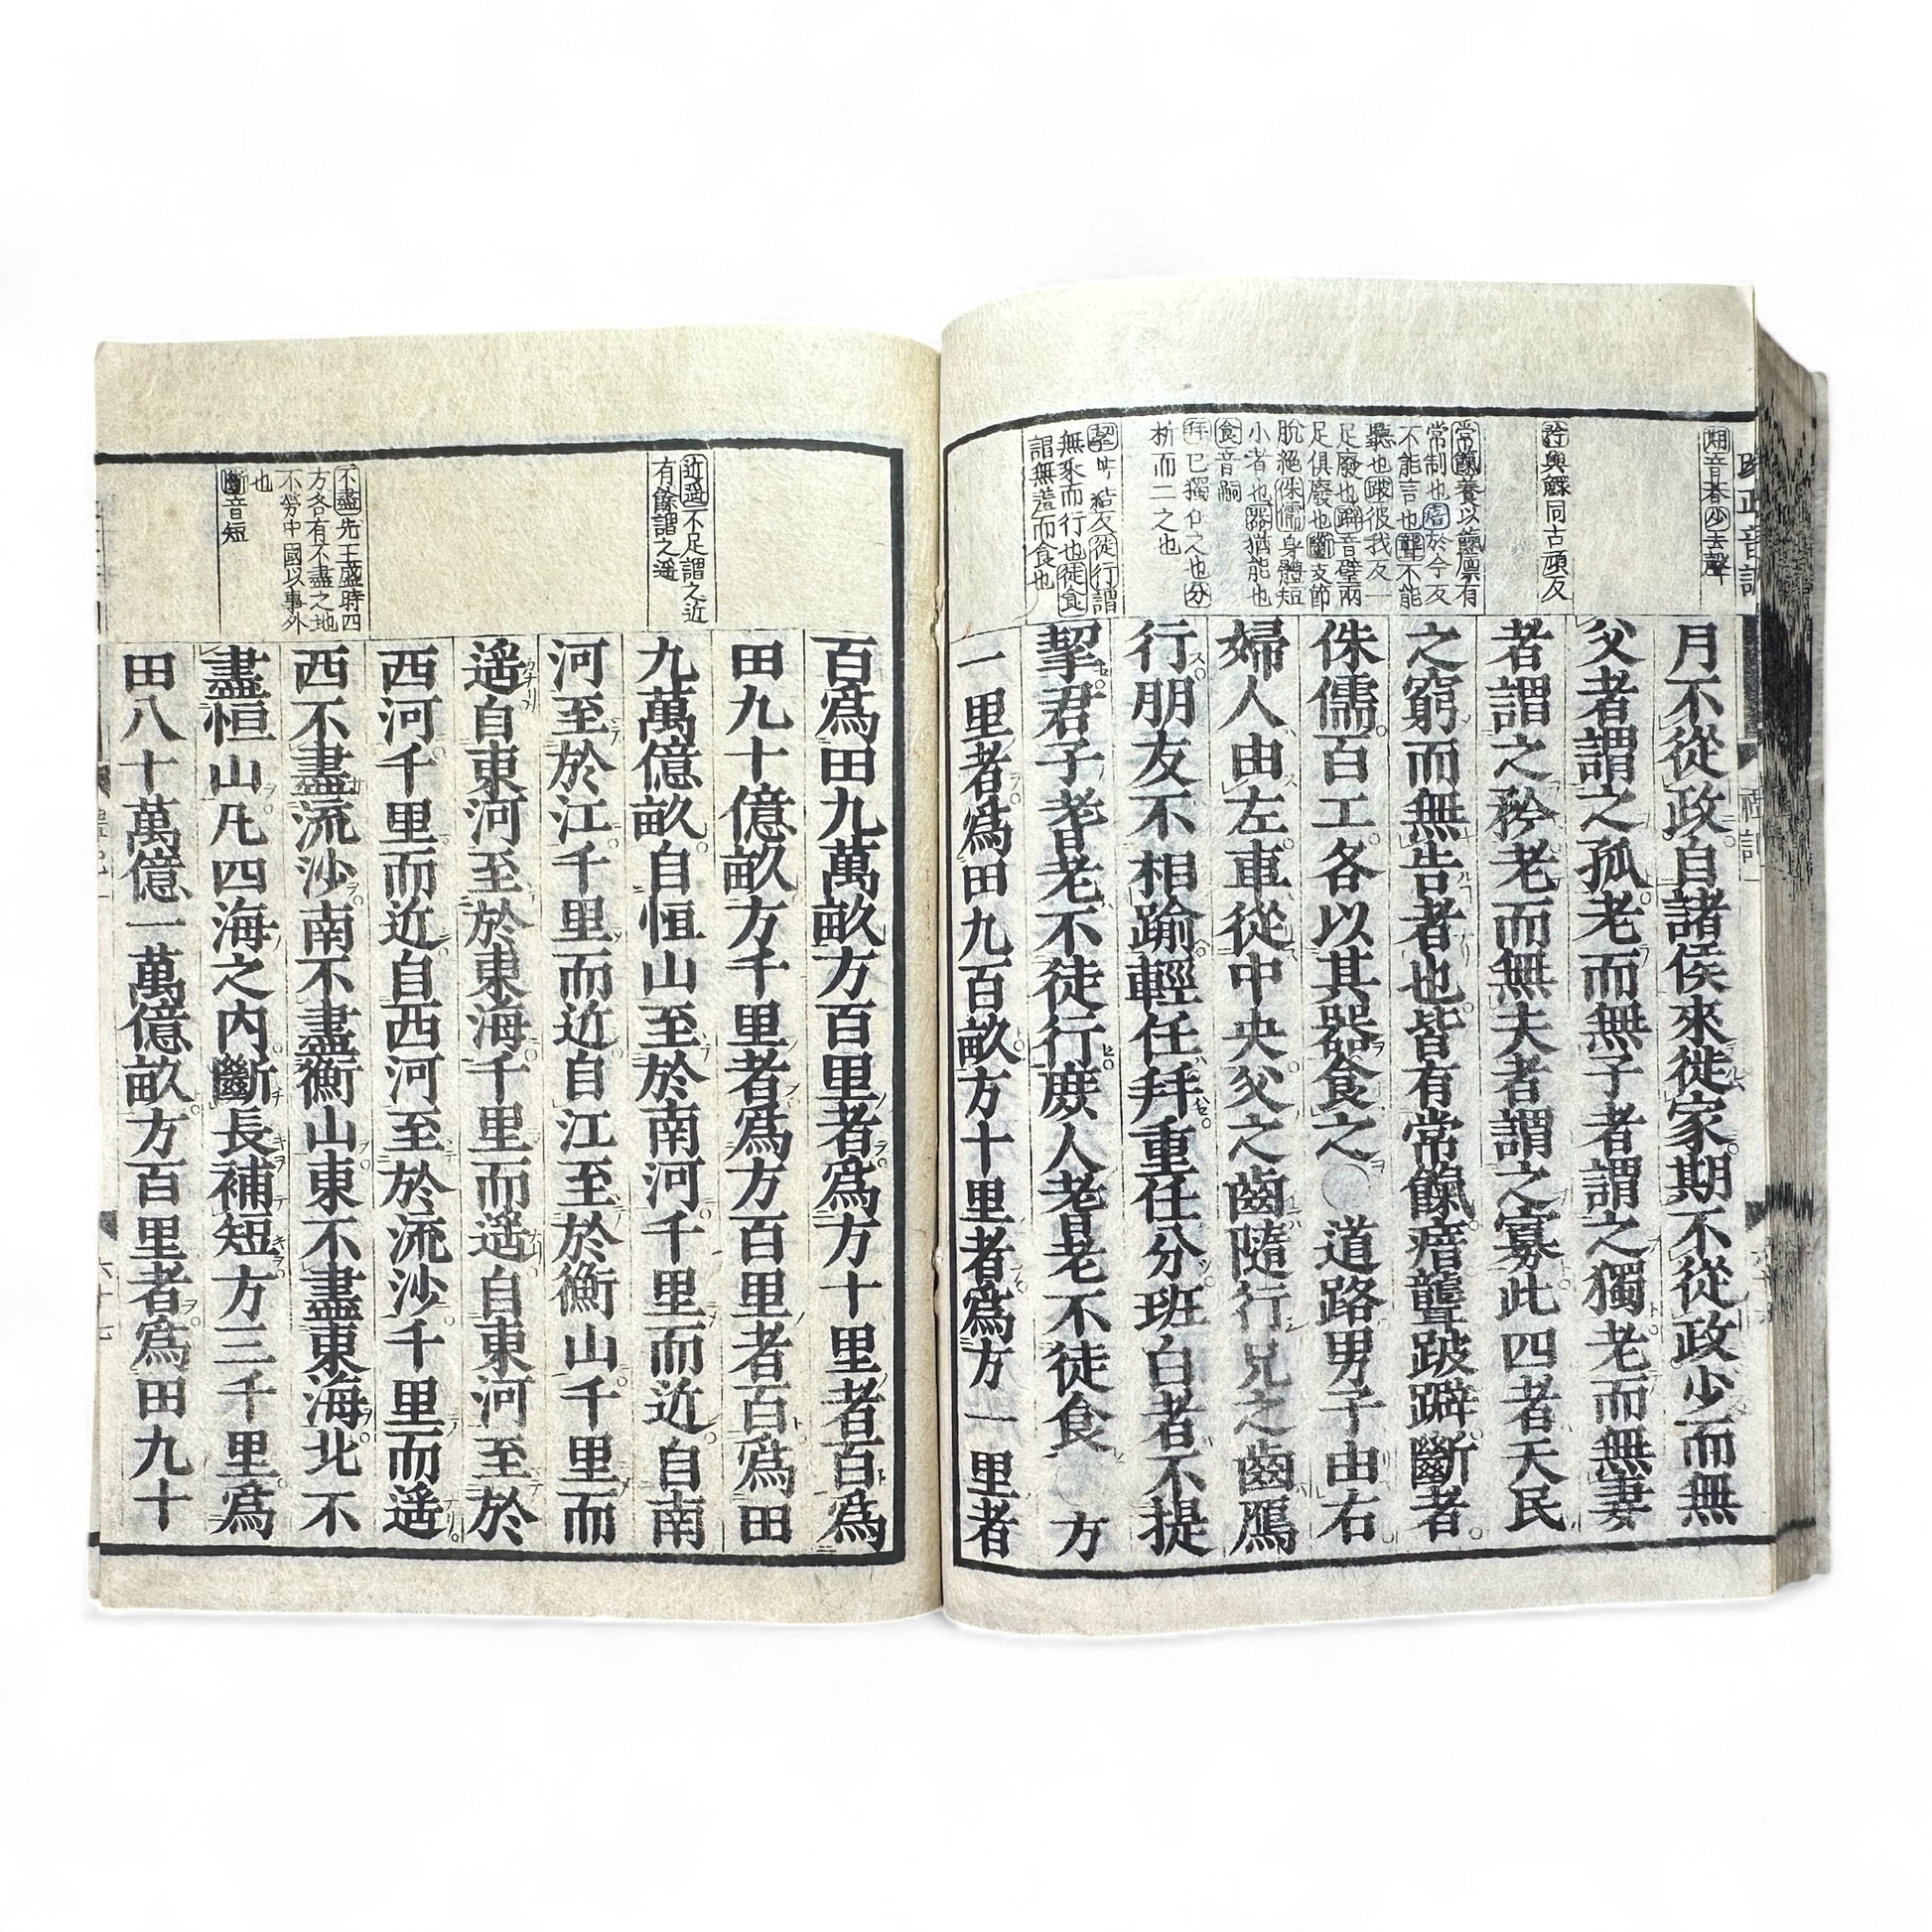 改正音訓
期音朞少去聲
矜與鰥同古頑反
常餼養以餼廩有
常制也瘖於今反
不能言也聾不能
聽也跛彼我反一
足廢也躃音壁兩
足俱廢也斷支節
脫絕侏儒身體短
小者也器猶能也
食音嗣
幷已獨任之也分
析而二之也
徒行謂
無乘而行也徒食
謂無羞而食也
月不從政自諸侯來徙家期不從政少而無
父者謂之孤老而無子者謂之獨老而無妻
者謂之矜老而無夫者謂之寡此四者天民
之窮而無告者也皆有常餼瘖聾跛躃斷者
侏儒百工各以其器食之○道路男子由右
婦人由左車從中央父之齒隨行兄之齒鴈
行朋友不相踰輕任幷重任分班白者不提
挈君子耆老不徒行庶人耆老不徒食 方
一里者爲田九百畝方十里者爲方一里者
近遥不足謂之近
有餘謂之遥
不盡先王盛時四
方各有不盡之地
不勞中國以事外
也
斷音短
百爲田九萬畝方百里者爲方十里者百爲
田九十億畝方千里者爲方百里者百爲田
九萬億畝自恒山至於南河千里而近自南
河至於江千里而近自江至於衡山千里而
遥自東河至於東海千里而遥自東河至於
西河千里而近自西河至於流沙千里而遥
西不盡流沙南不盡衡山東不盡東海北不
盡恒山凡四海之内斷長補短方三千里爲
田八十萬億一萬億畝方百里者爲田九十